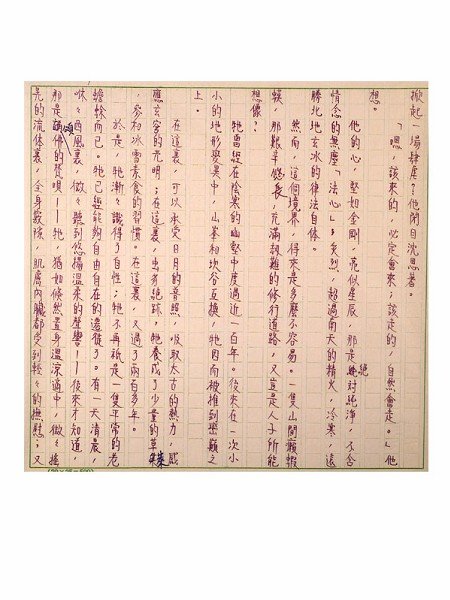 掀起一場肆虐？他閉目沉思著。
「嗯，該來的，必定會來；該走的，自然會走。」他
想。
他的心，堅如金剛，亮似星辰，那是絕對純淨，不含
情念的無塵「法心」；炙烈，超過南天的精火，冷寒，遠
勝北地玄冰的律法自体。
然而，這個境界，得來是多麼不容易。一隻山間癩蝦
蟆，那艱辛悠長，充滿親難的修行道路，又豈是人子所能
想像？
牠曾經在陰寒的幽壑中度過近一百年。後來在一次小
小的地形變異中，山峯和坎谷互換，牠因而被推到峦巔之
上。
在這裏，可以承受日月的普照，吸取太古的熱力，感
應玄穹的元明；在這裏，虫多絕跡。牠養成了少量的草葉
，參和冰雪素食的習慣。在這裏，又過了兩百多年。
於是，牠漸々識得了自性；牠不再祇是一隻平常的老
蟾蜍而已。牠已經能夠自由自在的遷徙了。有一天清晨，
咻々西風裏，微々聽到悠揚溫柔的聲響──後來才知道，
那是頌佛的聲唄──牠猶如倏然置身溫涼適中，微々搖
晃的流体裏，全身鬆弛，肌膚內臟都受到輕々的撫慰；又